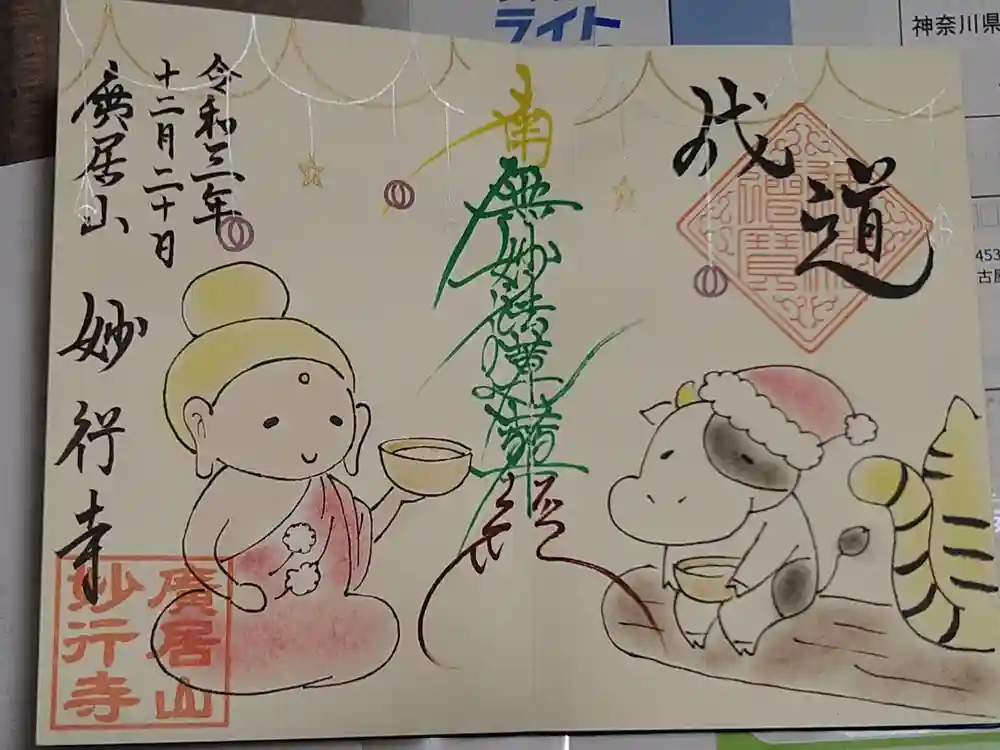 成道
南無妙法蓮華經
令和三年
十二月二十日
廣居山
妙行寺
廣居山
妙行寺
ライト
神奈川県
453
古屋